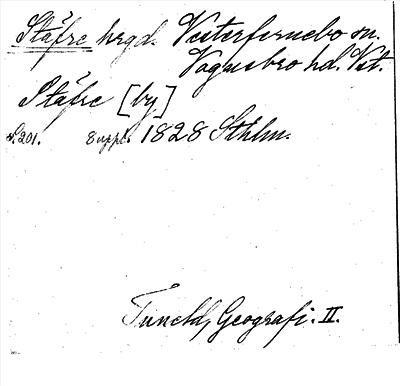 Stäfre hrgd. Vesterfernebo sn.
Vagnsbro hd. Vst.
Stäfre [by]
s. 201. 8 uppl. 1828 Sthlm.
Tuneld, Geografi. II.